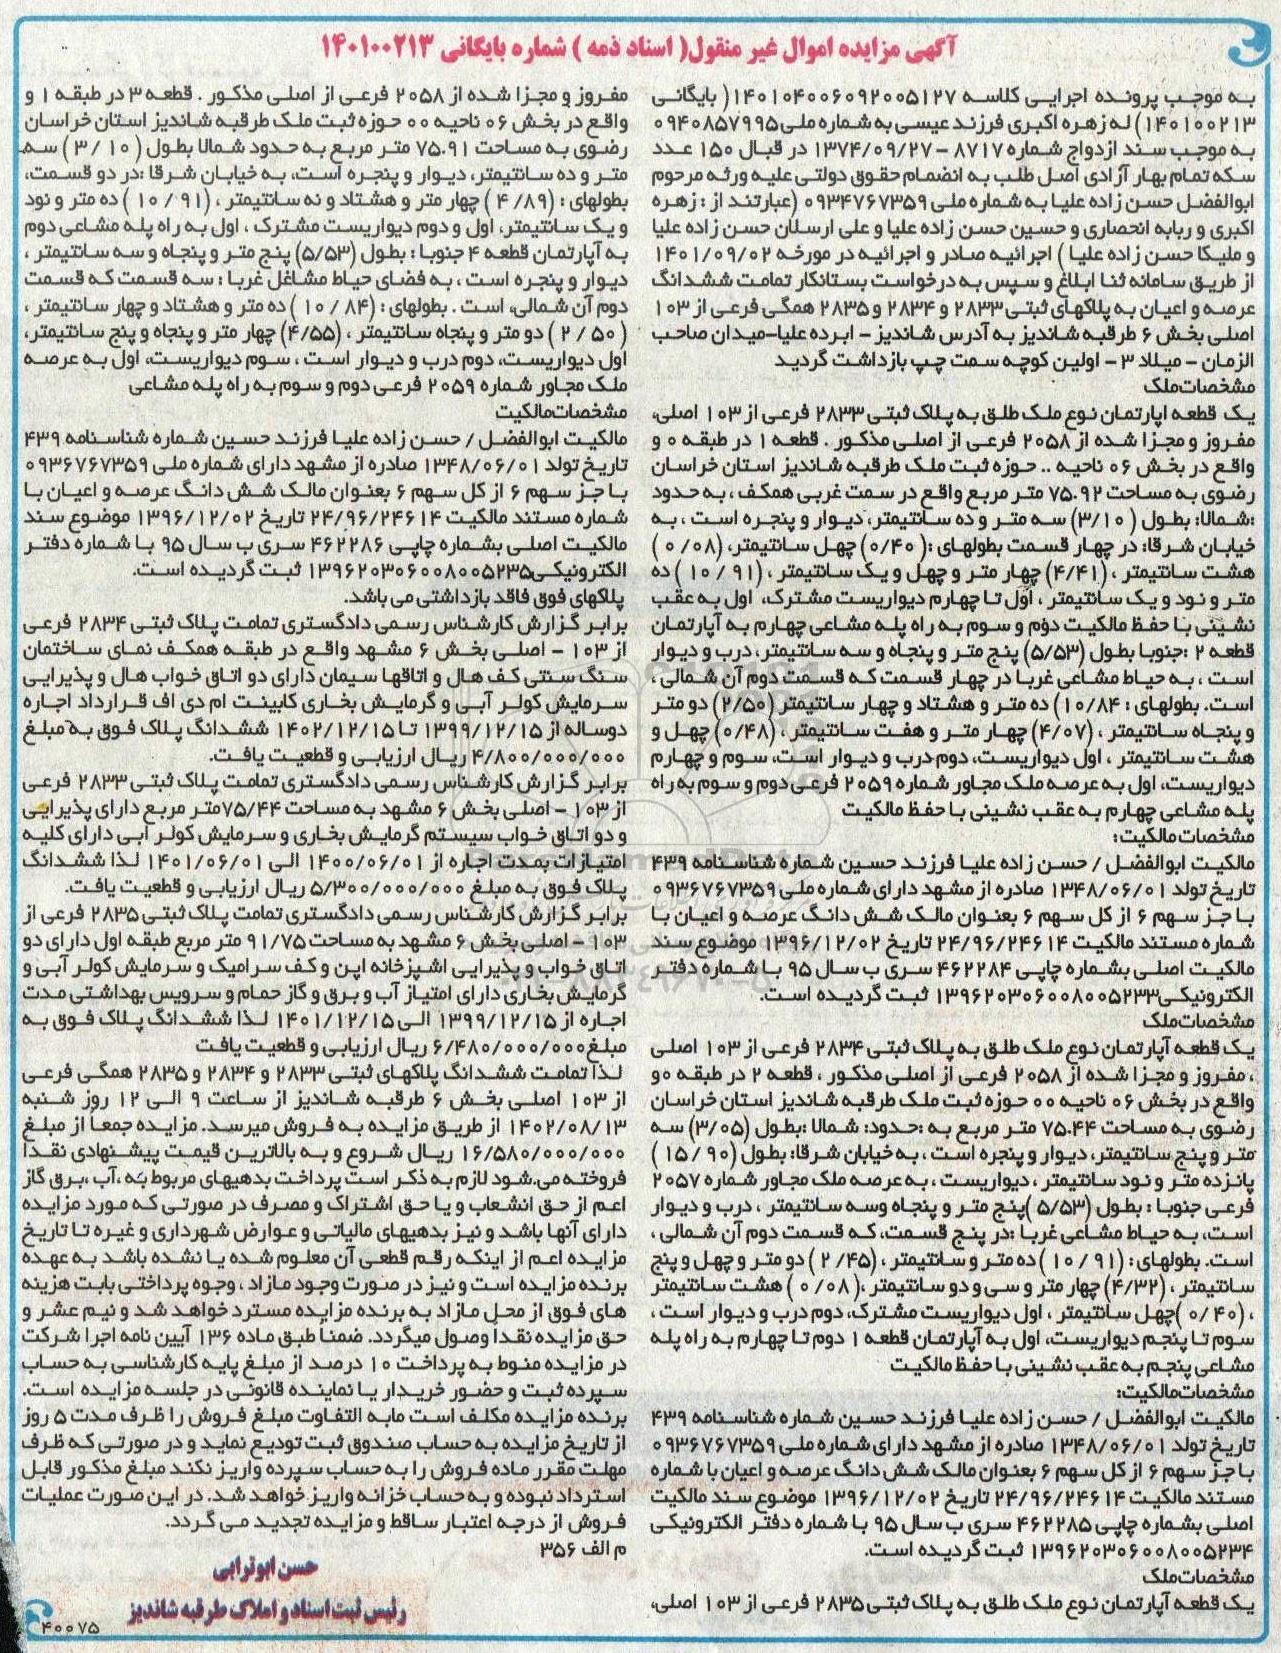 آگهی مزایده اموال غیر منقول( اسناد ذمه ) شماره بایگانی ۱۴۰۱۰۰۲۱۳
به موجب پرونده اجرایی کلاسه ۱۴۰۱۰۴۰۰۶۰۹۲۰۰۵۱۲۷( بایگانی
۱۴۰۱۰۰۲۱۳) له زهره اکبری فرزند عیسی به شماره ملی ۰۹۴۰۸۵۷۹۹۵
به موجب سند ازدواج شماره ۸۷۱۷ - ۱۳۷۴/۰۹/۲۷ در قبال ۱۵۰ عدد
سکه تمام بهار آزادی اصل طلب به انضمام حقوق دولتی علیه ورثه مرحوم
ابوالفضل حسن زاده علیا به شماره ملی ۰۹۳۴۷۶۷۳۵۹ (عبارتند از : زهره
اکبری و ربابه انحصاری و حسین حسن زاده علیا و علی ارسلان حسن زاده علیا
و ملیکا حسن زاده علیا ) اجرائیه صادر و اجرائیه در مورخه ۱۴۰۱/۰۹/۰۲
از طریق سامانه ثنا ابلاغ و سپس به درخواست بستانکار تمامت ششدانگ
عرصه و اعیان به پلاکهای ثبتی ۲۸۳۳ و ۲۸۳۴ و ۲۸۳۵ همگی فرعی از ۱۰۳
اصلی بخش ۶ طرقبه شاندیز به آدرس شاندیز - ابرده علیا-میدان صاحب
الزمان - میلاد ۳ - اولین کوچه سمت چپ بازداشت گردید
مشخصات‌ملک
یک قطعه اپارتمان نوع ملک طلق به پلاک ثبتی ۲۸۳۳ فرعی از ۱۰۳ اصلی،
مفروز و مجزا شده از ۲۰۵۸ فرعی از اصلی مذکور . قطعه ۱ در طبقه ۰ و
واقع در بخش ۰۶ ناحیه .. حوزه ثبت ملک طرقبه شاندیز استان خراسان
رضوی به مساحت ۷۵.۹۲ متر مربع واقع در سمت غربی همکف ، به حدود
:شمالا: بطول ( ۳/۱۰) سه متر و ده سانتیمتر، دیوار و پنجره است ، به
خیابان شرقا: در چهار قسمت بطولهای :( ۰/۴۰) چهل سانتیمتر، (۰/۰۸ )
هشت سانتیمتر ، (۴/۴۱) چهار متر و چهل و یک سانتیمتر ، (۹۱ / ۱۰ ) ده
متر و نود و یک سانتیمتر ، اول تا چهارم دیواریست مشترک، اول به عقب
نشینی با حفظ مالکیت دوم و سوم به راه پله مشاعی چهارم به آپارتمان
قطعه ۲ :جنوبا بطول (۵/۵۳) پنج متر و پنجاه و سه سانتیمتر، درب و دیوار
است ، به حیاط مشاعی غربا در چهار قسمت که قسمت دوم آن شمالی ،
است. بطولهای : (۱۰/۸۴ ) ده متر و هشتاد و چهار سانتیمتر (۲/۵۰) دو متر
و پنجاه سانتیمتر ، (۴/۰۷) چهار متر و هفت سانتیمتر ، (۰/۴۸) چهل و
هشت سانتیمتر ، اول دیواریست، دوم درب و دیوار است، سوم و چهارم
دیواریست، اول به عرصه ملک مجاور شماره ۲۰۵۹ فرعی دوم و سوم به راه
پله مشاعی چهارم به عقب نشینی با حفظ مالکیت
مشخصات‌مالکیت:
مالکیت ابوالفضل / حسن زاده علیا فرزند حسین شماره شناسنامه ۴۳۹
تاریخ تولد ۱۳۴۸/۰۶/۰۱ صادره از مشهد دارای شماره ملی ۰۹۳۶۷۶۷۳۵۹
با جز سهم ۶ از کل سهم ۶ بعنوان مالک شش دانگ عرصه و اعیان با
شماره مستند مالکیت ۲۴/۹۶/۲۴۶۱۴ تاریخ ۱۳۹۶/۱۲/۰۲ موضوع سند
مالکیت اصلی بشماره چاپی ۴۶۲۲۸۴ سری ب سال ۹۵ با شماره دفتر
الکترونیکی۱۳۹۶۲۰۳۰۶۰۰۸۰۰۵۲۳۳ ثبت گردیده است.
مشخصات‌ملک
یک قطعه آپارتمان نوع ملک طلق به پلاک ثبتی ۲۸۳۴ فرعی از ۱۰۳ اصلی
، مفروز و مجزا شده از ۲۰۵۸ فرعی از اصلی مذکور ، قطعه ۲ در طبقه ۰و
واقع در بخش ۰۶ ناحیه ۰۰ حوزه ثبت ملک طرقبه شاندیز استان خراسان
رضوی به مساحت ۷۵.۴۴ متر مربع به :حدود: شمالا :بطول (۳/۰۵) سه
متر و پنج سانتیمتر، دیوار و پنجره است ، به خیابان شرقا: بطول (۹۰ / ۱۵ )
پانزده متر و نود سانتیمتر ، دیواریست ، به عرصه ملک مجاور شماره ۲۰۵۷
فرعی جنوبا : بطول (۵/۵۳ )پنج متر و پنجاه وسه سانتیمتر ، درب و دیوار
است، به حیاط مشاعی غربا :در پنج قسمت، که قسمت دوم آن شمالی ،
است. بطولهای : (۹۱ / ۱۰ ) ده متر و سانتیمتر ، (۲/۴۵ ) دو متر و چهل و پنج
سانتیمتر ، (۴/۳۲) چهار متر و سی و دو سانتیمتر ،( ۰/۰۸ ) هشت سانتیمتر
، (۰/۴۰ )چهل سانتیمتر ، اول دیواریست مشترک، دوم درب و دیوار است ،
سوم تا پنجم دیواریست، اول به آپارتمان قطعه ۱ دوم تا چهارم به راه پله
مشاعی پنجم به عقب نشینی با حفظ مالکیت
مشخصات‌مالکیت:
مالکیت ابوالفضل / حسن زاده علیا فرزند حسین شماره شناسنامه ۴۳۹
تاریخ تولد ۱۳۴۸/۰۶/۰۱ صادره از مشهد دارای شماره ملی ۰۹۳۶۷۶۷۳۵۹
با جز سهم ۶ از کل سهم ۶ بعنوان مالک شش دانگ عرصه و اعیان با شماره
مستند مالکیت ۲۴/۹۶/۲۴۶۱۴ تاریخ ۱۳۹۶/۱۲/۰۲ موضوع سند مالکیت
اصلی بشماره چاپی ۴۶۲۲۸۵ سری ب سال ۹۵ با شماره دفتر الکترونیکی
۱۳۹۶۲۰۳۰۶۰۰۸۰۰۵۲۳۴ ثبت گردیده است.
مشخصات‌ملک
یک قطعه آپارتمان نوع ملک طلق به پلاک ثبتی ۲۸۳۵ فرعی از ۱۰۳ اصلی،
مفروز و مجزا شده از ۲۰۵۸ فرعی از اصلی مذکور . قطعه ۳ در طبقه ۱ و
واقع در بخش ۰۶ ناحیه ۰۰ حوزه ثبت ملک طرقبه شاندیز استان خراسان
رضوی به مساحت ۷۵.۹۱ متر مربع به حدود شمالا بطول ( ۱۰ / ۳ ) سه
متر و ده سانتیمتر، دیوار و پنجره است، به خیابان شرقا :در دو قسمت،
بطولهای : (۸۹/ ۴ ) چهار متر و هشتاد و نه سانتیمتر ، (۹۱ / ۱۰ ) ده متر و نود
و یک سانتیمتر، اول و دوم دیواریست مشترک ، اول به راه پله مشاعی دوم
به آپارتمان قطعه ۴ جنوبا : بطول (۵/۵۳) پنج متر و پنجاه و سه سانتیمتر ،
دیوار و پنجره است ، به فضای حیاط مشاغل غربا : سه قسمت که قسمت
دوم آن شمالی، است . بطولهای : (۸۴ / ۱۰ ) ده متر و هشتاد و چهار سانتیمتر ،
( ۵۰ / ۲ ) دو متر و پنجاه سانتیمتر ، (۴/۵۵) چهار متر و پنجاه و پنج سانتیمتر،
اول دیواریست، دوم درب و دیوار است ، سوم دیواریست، اول به عرصه
ملک مجاور شماره ۲۰۵۹ فرعی دوم و سوم به راه پله مشاعی
مشخصات‌مالکیت
مالکیت ابوالفضل / حسن زاده علیا فرزند حسین شماره شناسنامه ۴۳۹
تاریخ تولد ۱۳۴۸/۰۶/۰۱ صادره از مشهد دارای شماره ملی ۰۹۳۶۷۶۷۳۵۹
با جز سهم ۶ از کل سهم ۶ بعنوان مالک شش دانگ عرصه و اعیان با
شماره مستند مالکیت ۲۴/۹۶/۲۴۶۱۴ تاریخ ۱۳۹۶/۱۲/۰۲ موضوع سند
مالکیت اصلی بشماره چاپی ۴۶۲۲۸۶ سری ب سال ۹۵ با شماره دفتر
الکترونیکی۱۳۹۶۲۰۳۰۶۰۰۸۰۰۵۲۳۵ ثبت گردیده است.
پلاکهای فوق فاقد بازداشتی می باشد.
برابر گزارش کارشناس رسمی دادگستری تمامت پلاک ثبتی ۲۸۳۴ فرعی
از ۱۰۳ - اصلی بخش ۶ مشهد واقع در طبقه همکف نمای ساختمان
سنگ سنتی کف هال و اتاقها سیمان دارای دو اتاق خواب هال و پذیرایی
سرمایش کولر آبی و گرمایش بخاری کابینت ام دی اف قرارداد اجاره
دوساله از ۱۳۹۹/۱۲/۱۵ تا ۱۴۰۲/۱۲/۱۵ ششدانگ پلاک فوق به مبلغ
۴/۸۰۰/۰۰۰/۰۰۰ ریال ارزیابی و قطعیت یافت.
برابر گزارش کارشناس رسمی دادگستری تمامت پلاک ثبتی ۲۸۳۳ فرعی
از ۱۰۳ - اصلی بخش ۶ مشهد به مساحت ۷۵/۴۴متر مربع دارای پذیرایی
و دو اتاق خواب سیستم گرمایش بخاری و سرمایش کولر ابی دارای کلیه
امتیازات بمدت اجاره از ۱۴۰۰/۰۶/۰۱ الی ۱۴۰۱/۰۶/۰۱ لذا ششدانگ
پلاک فوق به مبلغ ۵/۳۰۰/۰۰۰/۰۰۰ ریال ارزیابی و قطعیت یافت.
برابر گزارش کارشناس رسمی دادگستری تمامت پلاک ثبتی ۲۸۳۵ فرعی از
۱۰۳ - اصلی بخش ۶ مشهد به مساحت ۹۱/۷۵ متر مربع طبقه اول دارای دو
اتاق خواب و پذیرایی اشپزخانه اپن و کف سرامیک و سرمایش کولر آبی و
گرمایش بخاری دارای امتیاز آب و برق و گاز حمام و سرویس بهداشتی مدت
اجاره از ۱۳۹۹/۱۲/۱۵ الی ۱۴۰۱/۱۲/۱۵ لذا ششدانگ پلاک فوق به
مبلغ ۶/۴۸۰/۰۰۰/۰۰۰ ریال ارزیابی و قطعیت یافت
لذا تمامت ششدانگ پلاکهای ثبتی ۲۸۳۳ و ۲۸۳۴ و ۲۸۳۵ همگی فرعی
از ۱۰۳ اصلی بخش ۶ طرقبه شاندیز از ساعت ۹ الی ۱۲ روز شنبه
۱۴۰۲/۰۸/۱۳ از طریق مزایده به فروش میرسد. مزایده جمعا از مبلغ
۱۶/۵۸۰/۰۰۰/۰۰۰ ریال شروع و به بالاترین قیمت پیشنهادی نقدا
فروخته می‌شود لازم به ذکر است پرداخت بدهیهای مربوط به ،آب ،برق گاز
اعم از حق انشعاب و یا حق اشتراک و مصرف در صورتی که مورد مزایده
دارای آنها باشد و نیز بدهیهای مالیاتی و عوارض شهرداری و غیره تا تاریخ
مزایده اعم از اینکه رقم قطعی آن معلوم شده یا نشده باشد به عهده
برنده مزایده است و نیز در صورت وجود مازاد ، وجوه پرداختی بابت هزینه
های فوق از محل مازاد به برنده مزایده مسترد خواهد شد و نیم عشر و
حق مزایده نقدا وصول میگردد. ضمنا طبق ماده ۱۳۶ آیین نامه اجرا شرکت
در مزایده منوط به پرداخت ۱۰ درصد از مبلغ پایه کارشناسی به حساب
سپرده ثبت و حضور خریدار یا نماینده قانونی در جلسه مزایده است.
برنده مزایده مکلف است مابه التفاوت مبلغ فروش را ظرف مدت ۵ روز
از تاریخ مزایده به حساب صندوق ثبت تودیع نماید و در صورتی که ظرف
مهلت مقرر ماده فروش را به حساب سپرده واریز نکند مبلغ مذکور قابل
استرداد نبوده و به حساب خزانه واریز خواهد شد. در این صورت عملیات
فروش از درجه اعتبار ساقط و مزایده تجدید می گردد.
م الف ۳۵۶
حسن ابوترابی
رئیس ثبت اسناد و املاک طرقبه شاندیز
۴۰۰۷۵